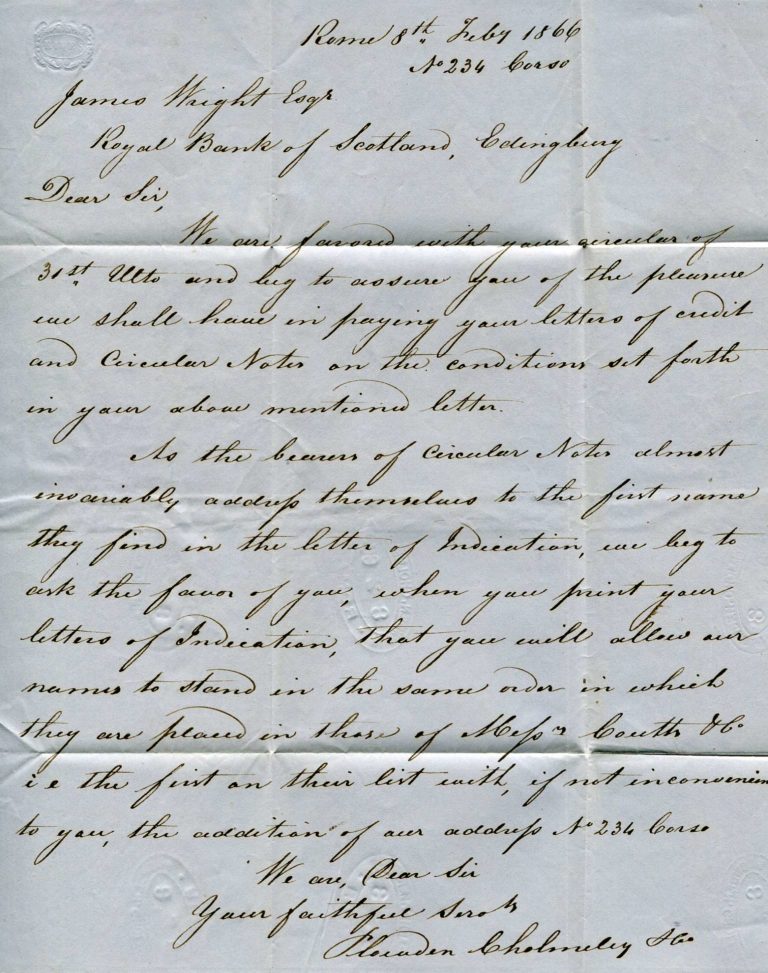 Rome 8th Feby 1866
No 234 Corso
James Wright Esqr
Royal Bank of Scotland, Edingburg
Dear Sir,
We are favored with your circular of
31st Ulto and beg to assure you of the pleasure
we shall have in paying your letters of credit
and Circular Notes on the conditions set forth
in your above mentioned letter.
As the bearers of Circular Notes almost
invariably address themselves to the first name
they find in the letter of Indication, we beg to
ask the favor of you, when you print your
letters of Indication, that you will allow our
names to stand in the same order in which
they are placed in those of Messrs Coutts & Co
i e the first on their list with, if not inconvenien
to you, the addition of our address No 234 Corso
We are, Dear Sir
Your faithful Servts
Plowden Cholmeley & Co